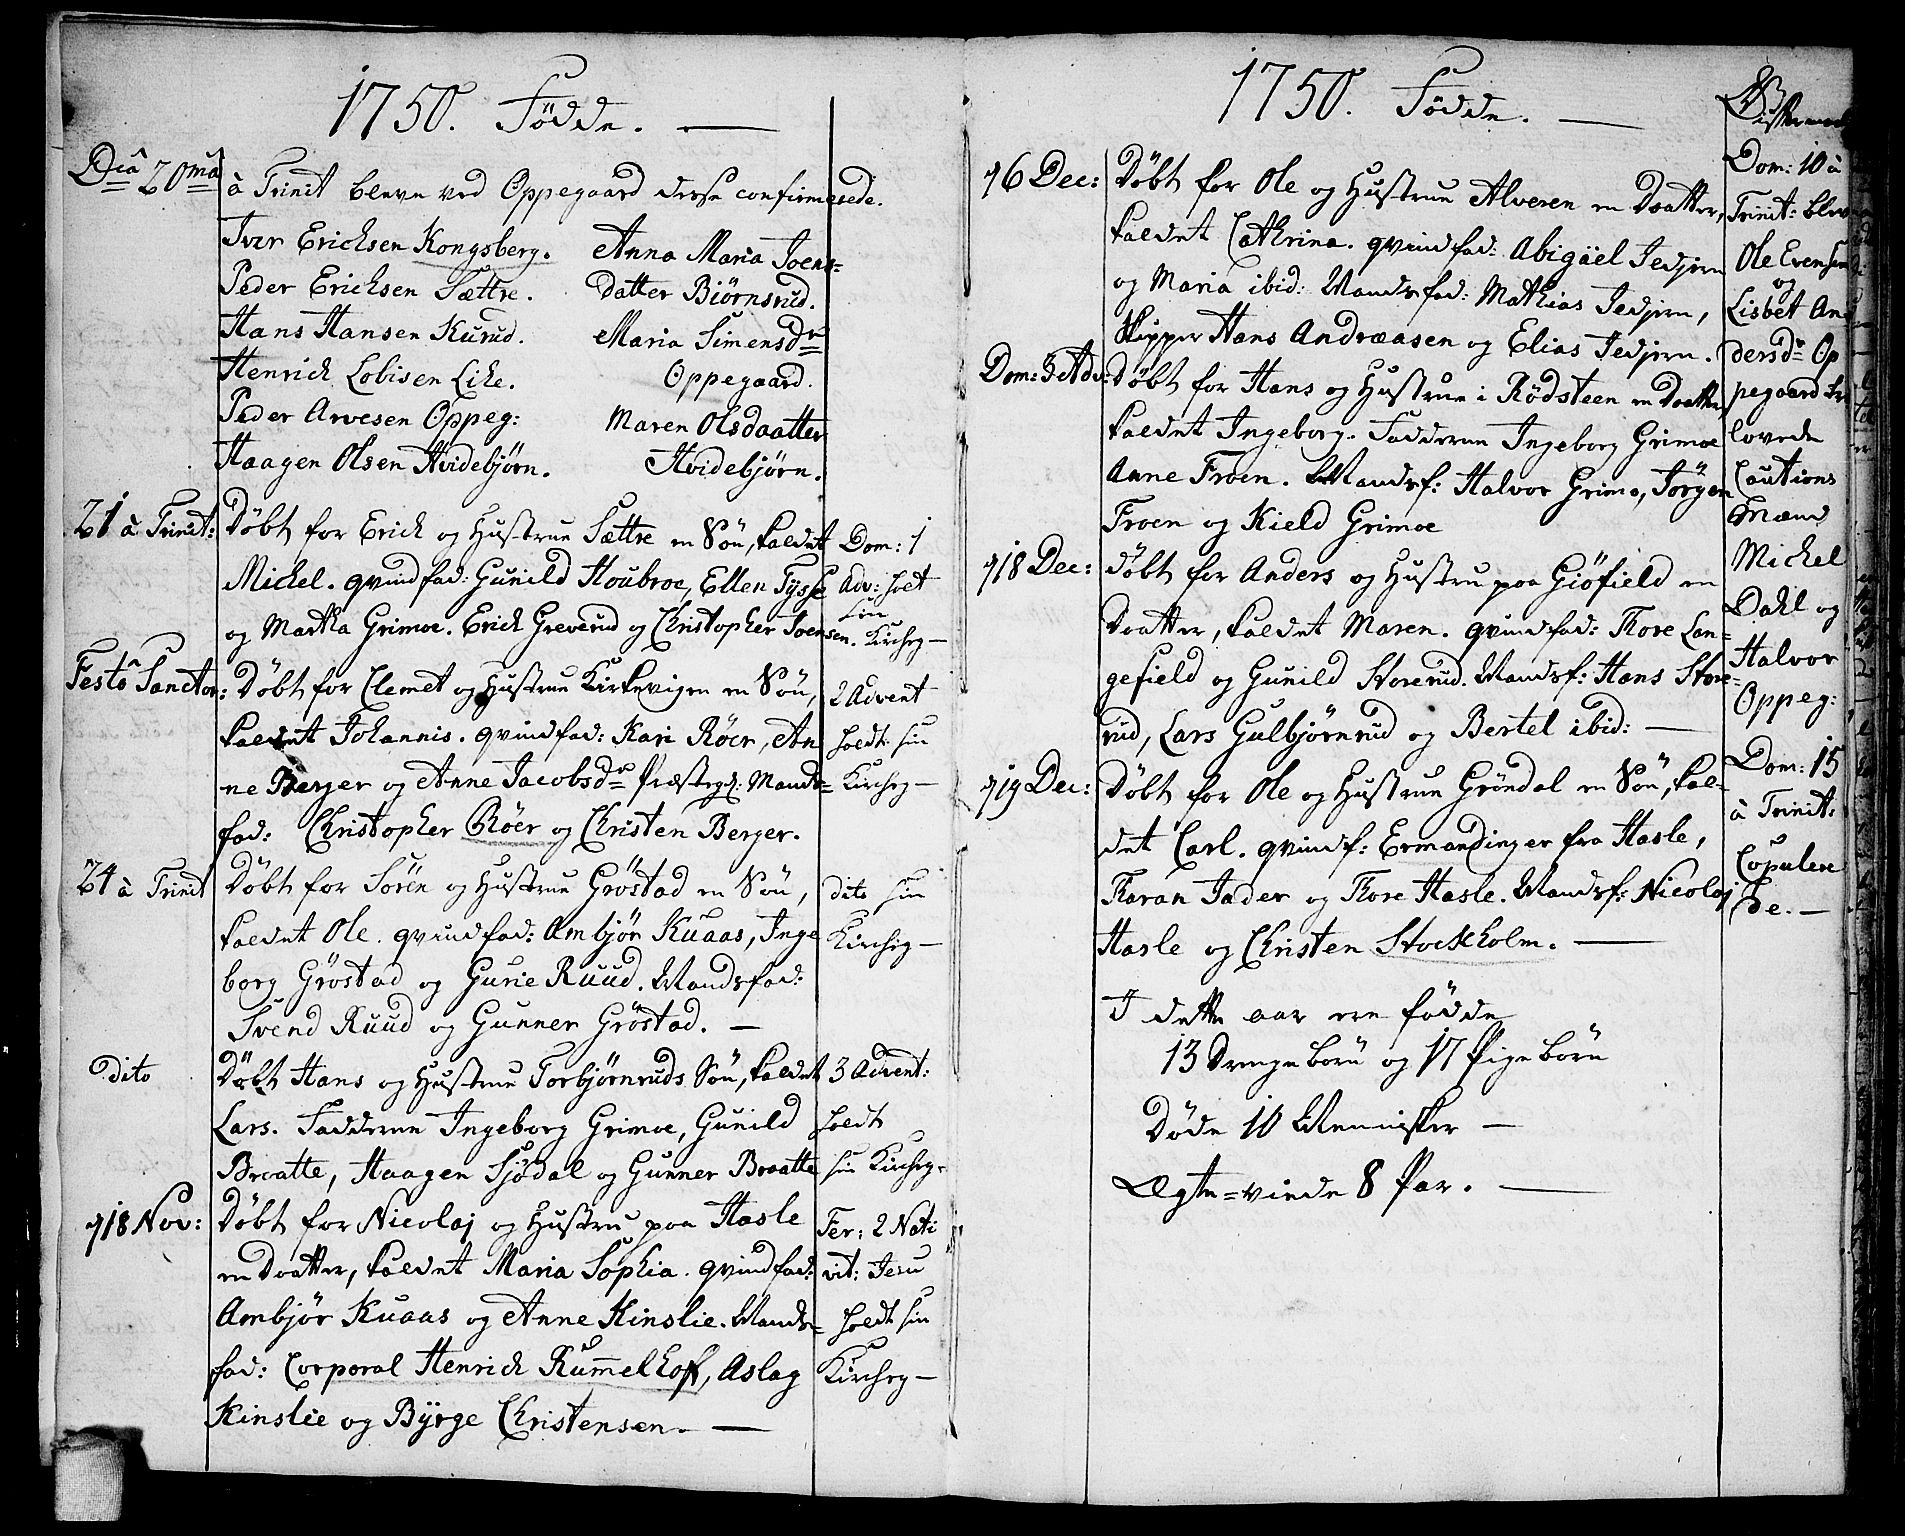 1750. Födde. —
Diâ 20mâ
à Trinit bleve ved Oppegaard desse confirmerede.
Iver Erichsen Kongsberg. Anna Maria Joens=
Peder Erichsen Sættre. datter Biörnsrud.
Hans Hansen Kurud. Maria Simensdr
Henrich Lobisen Lihe. Oppegaard.
Peder Arvesen Oppeg: Maren Olsdaatter
Haagen Olsen Hvidebjörn. Hvidebjörn.
21 à Trinit: Döbt for Erich og Hustrue Sættre en Sön, kaldet
Michel. qvindfad: Gunild Houbroe, Ellen Tysse
og Martha Grimoe. Erich Greverud og Christopher Joensen.
Dom: 1
Adv: holt
sin
Kirchg —
Festô Sanctor: Döbt for Clemet og Hustrue Kirkevigen en Sön,
kaldet Johannis. qvindfad: Kari Röer, An
ne Berger og Anne Jacobsdr Præstegd: Mands=
fad: Christopher Röer og Christen Berger.
2 Advent
holdt sin
Kirchg —
24 à Trinit Döbt for Sören og Hustrue Gröstad en Sön,
kaldet Ole. qvindfad: Ambjör Kuaas, Inge
borg Gröstad og Gurie Ruud. Mandsfad:
Svend Ruud og Gunner Gröstad. —
dito sin
Kirchg —
dito Döbt Hans og Hustrue Torbjörnruds Sön, kaldet
Lars. Fadderne Ingeborg Grimoe, Gunild
Braatte, Haagen Sjödal og Gunner Braatte
3 Advent:
holdt
sin Kirchg-
18 Nov: Döbt for Nicolaj og Hustru paa Hasle
en Daatter, kaldet Maria Sophia. qvindfad:
Ambjör Kuaas og Anne Kinslie. Mands=
fad: Corporal Henrich Rummelhoff, Aslag
Kinslie og Byrge Christensen. —
Fer: 2 Nati
vit: Jesu
holdt sin
Kirchg —
1750. Födde. —
16 Dec: Döbt for Ole og Hustrue Alveren en Daatter,
kaldet Cathrina. qvindfad: Abigäel Jedjern
og Maria ibid: Mandsfad: Mathias Jedjern,
Skipper Hans Andræasen og Elias Jedjern.
Dom: 3 Adv: Döbt for Hans og Hustrue i Rödsteen en Daatter
kaldet Ingeborg. Fadderne Ingeborg Grimoe
Anne Froen. Mandsf: Halvor Grimo, Jörgen
Froen og Kield Grimoe
18 Dec: döbt for Anders og Hustru paa Giöfield en
Daatter, kaldet Maren. qvindfad: Thore Lan=
gefield og Gunild Storerud. Mandsf: Hans Store=
rud, Lars Gulbjörnrud og Bertel ibid: —
19 Dec: Döbt for Ole og Hustrue Gröndal en Sön, kal-
det Carl. qvindf: Ermandinger fra Hasle,
Karan Jader og Thore Hasle. Mandsf: Nicolaj
Hasle og Christen Stockholm. —
I dette aar ere födde
13 Drengebörn og 17 Pigebörn
Döde 10 Mennisker —
Ægte=viede 8 Par. —
Dom: 10 à
Trinit: blev
Ole Evensen
og
Lisbet An
dersdr Op
pegaard tr
lovede
Cautions
Mænd
Michel
Dahl og
Halvor
Oppeg:
Dom: 15
à Trinit:
Copulere
de. —